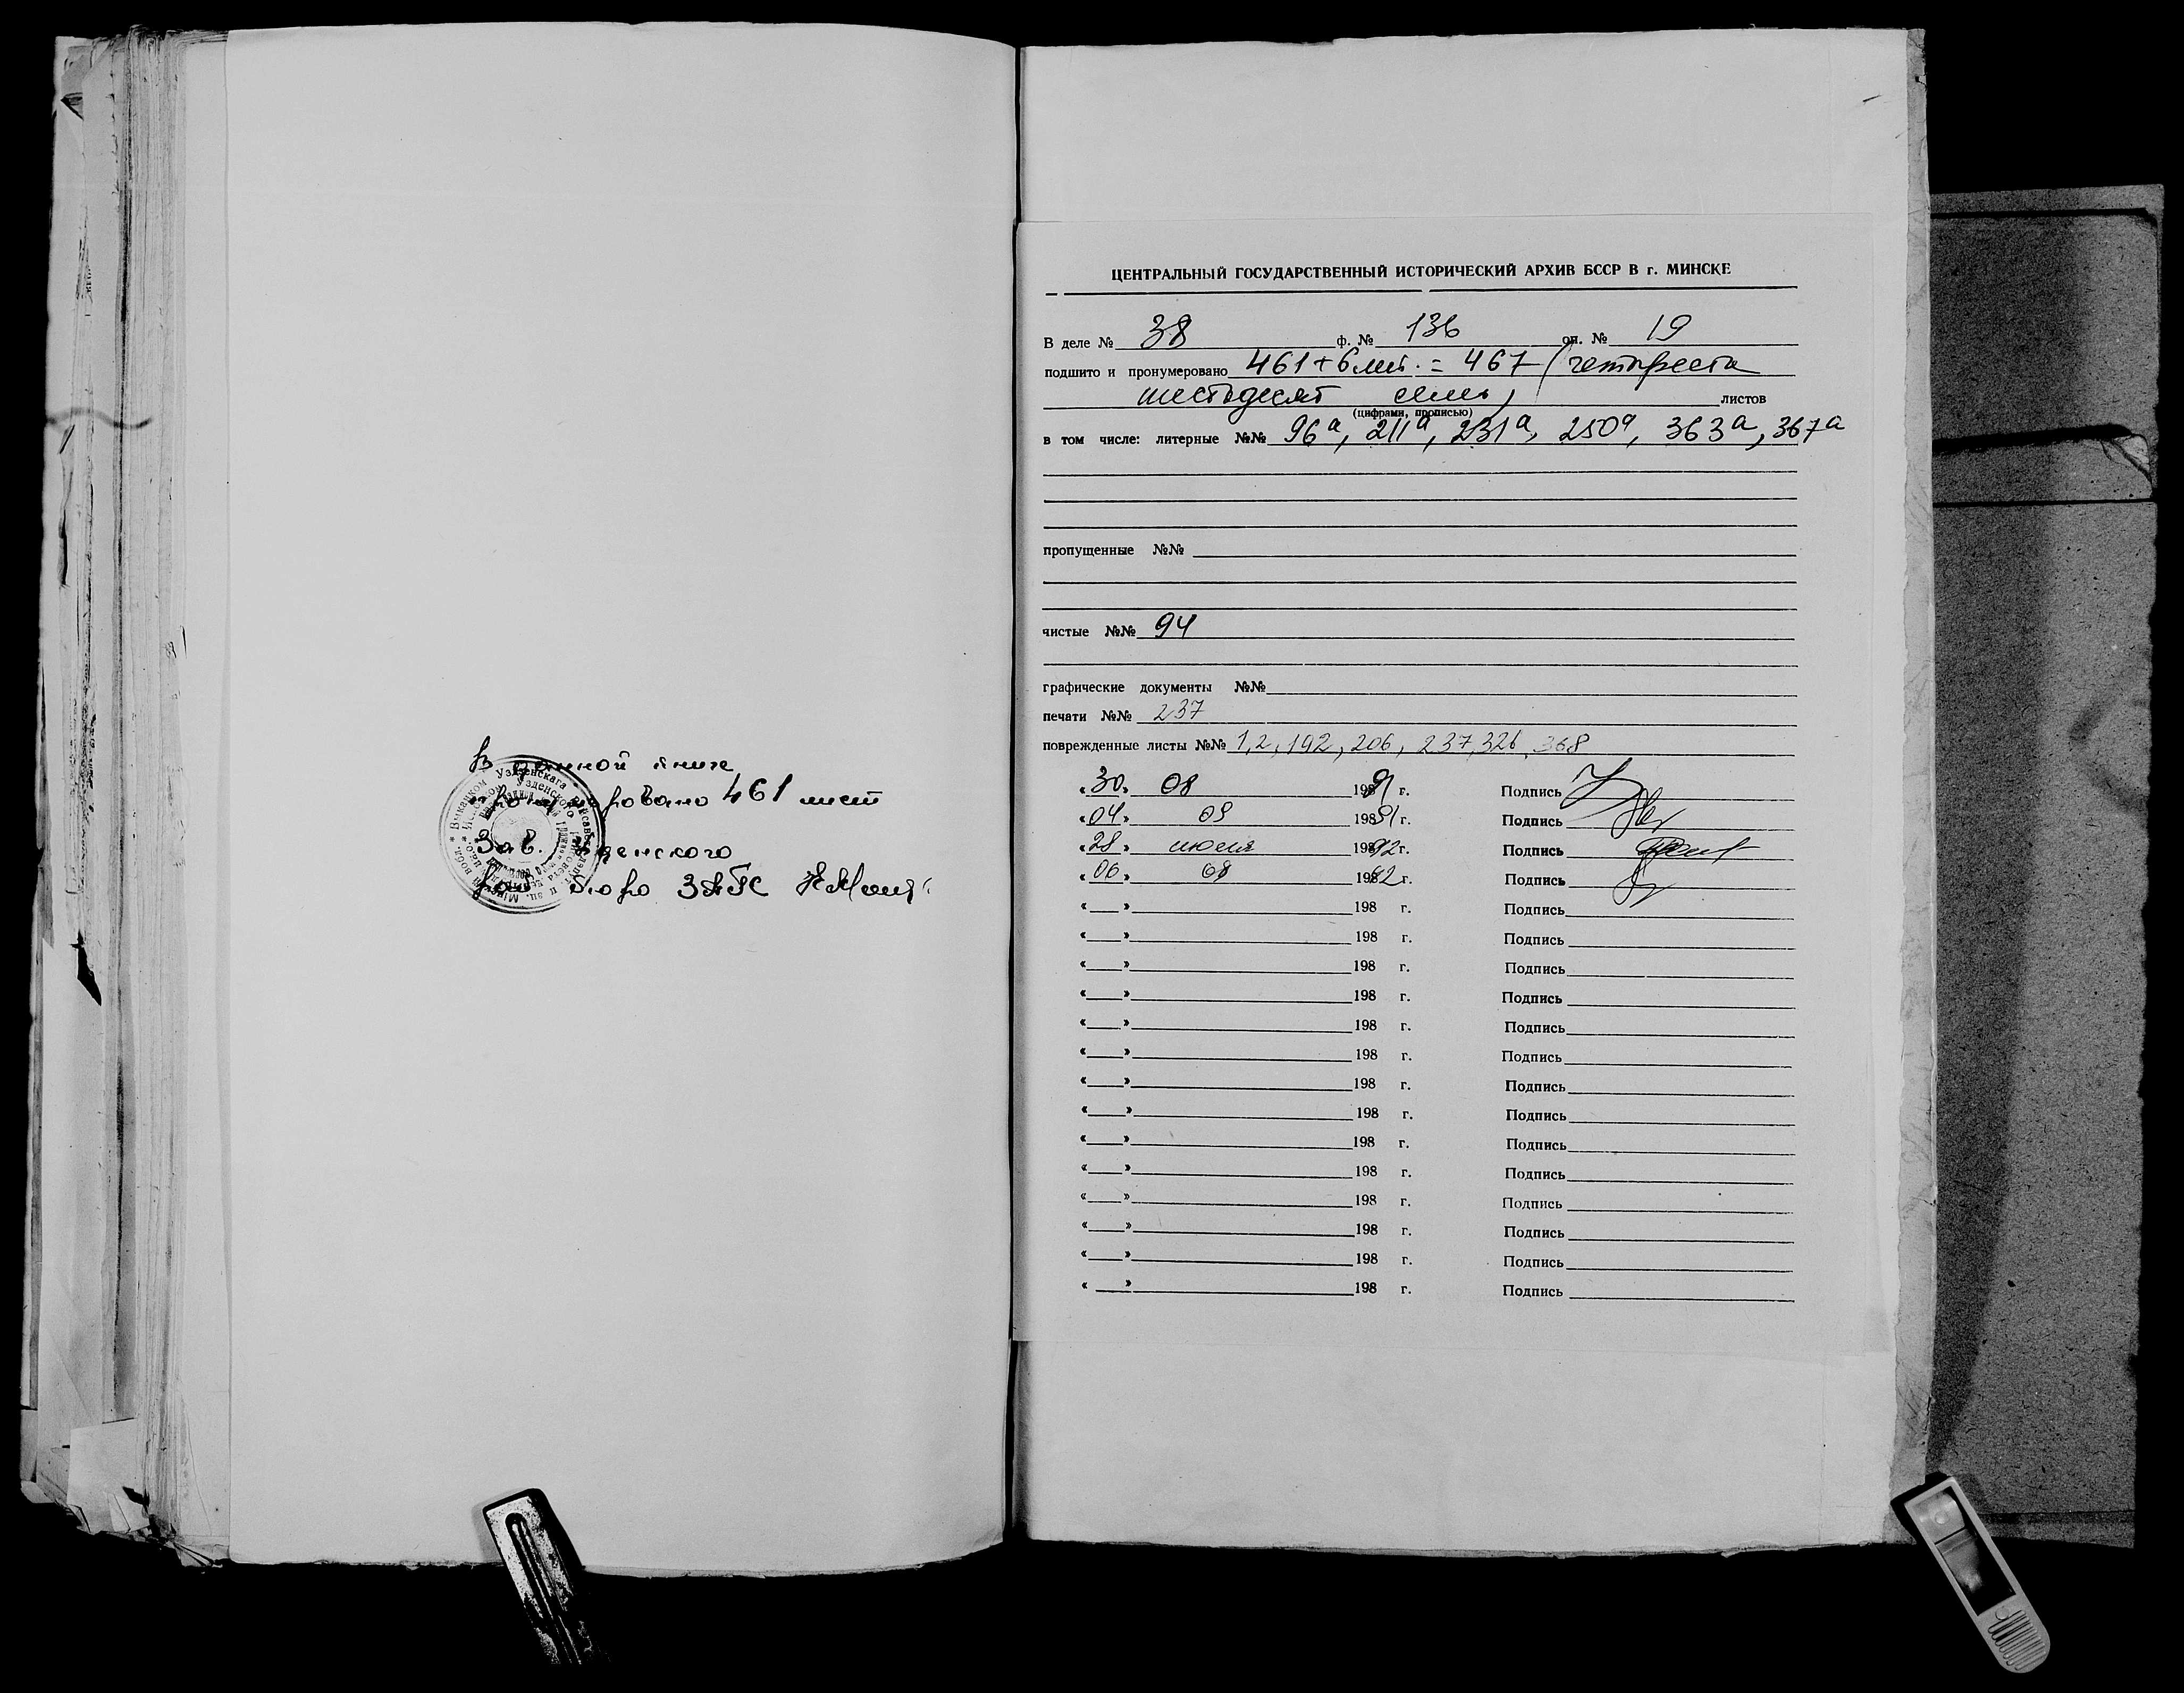 В данной книге
пронумеровано 461 лист
Зав. Узденского
рай бюро ЗАГС
ЦЕНТРАЛЬНЫЙ ГОСУДАРСТВЕННЫЙ ИСТОРИЧЕСКИЙ АРХИВ БССР В г. МИНСКЕ
В деле № 38 ф. № 136 оп. № 19
подшито и пронумеровано 461+6 лит. = 467 (четыреста
шестьдесят семь) листов
(цифрами, прописью)
в том числе: литерные №№ 96а, 211а, 231а, 250а, 363а, 367а
пропущенные №№
чистые №№ 94
графические документы №№
печати №№ 237
поврежденные листы №№ 1, 2, 192, 206, 237, 326, 368
«30» 08 1991 г. Подпись
«04» 09 1991 г. Подпись
«28» июля 1992 г. Подпись
«06» 08 1992 г. Подпись
« » 198 г. Подпись
« » 198 г. Подпись
« » 198 г. Подпись
« » 198 г. Подпись
« » 198 г. Подпись
« » 198 г. Подпись
« » 198 г. Подпись
« » 198 г. Подпись
« » 198 г. Подпись
« » 198 г. Подпись
« » 198 г. Подпись
« » 198 г. Подпись
« » 198 г. Подпись
« » 198 г. Подпись